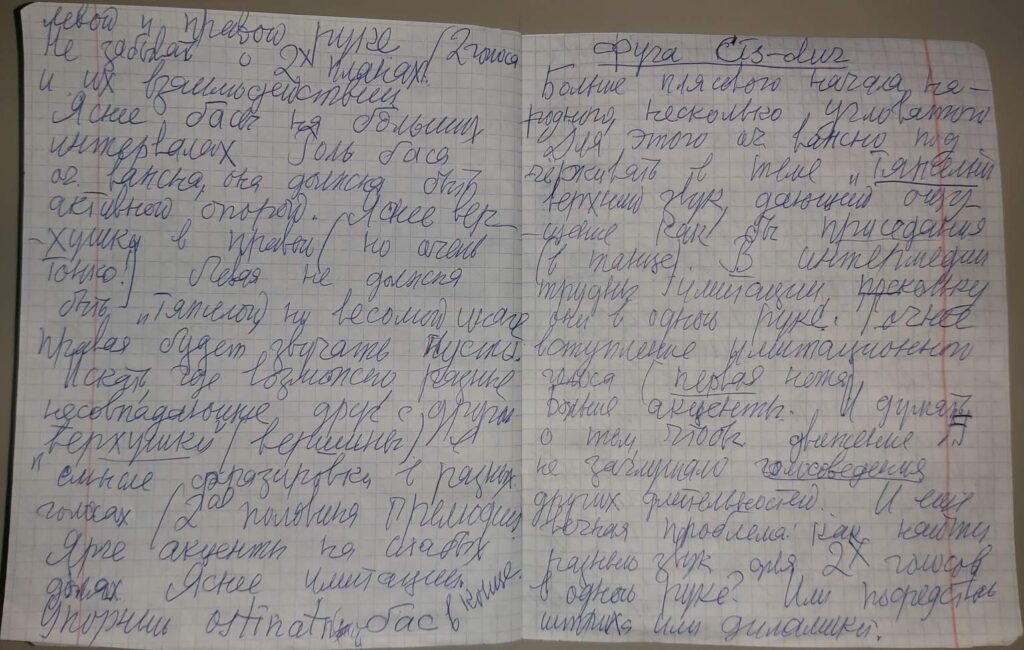 левой и правой руке (2 голоса
Не забывать о 2х планах!
и их взаимодействии
Яснее басы на больших
интервалах Роль баса
оч. важна, она должна быть
активной опорой. Яснее вер-
-хушки в правой (но очень
тонко!) Левая не должна
быть „тяжелой", ни весомой иначе
правая будет звучать пусто.
Искать где возможно разные
несовпадающие друг с другом
верхушки (вершины) в
смысле фразировки в разных
голосах (2ая половина Прелюдии
Ярче акценты на слабых
долях Яснее имитации.
Упорный ostinatный бас в конце.
Фуга Cis-dur
Больше плясового начала, на-
родного, несколько угловатого
Для этого оч важно под-
черкивать в теме „тяжелый
верхний звук, дающий ощу-
-щение как бы приседания
(в танце). В интермедии
трудны имитации, поскольку
они в одной руке. Точное
вступление имитационного
голоса (первая нота)
Больше акценты. И думать
о том, чтобы движение
не заглушало голосоведения
других длительностей. И еще
вечная проблема: как найти
разный звук для 2х голосов
в одной руке? Или посредством
штриха или динамики.